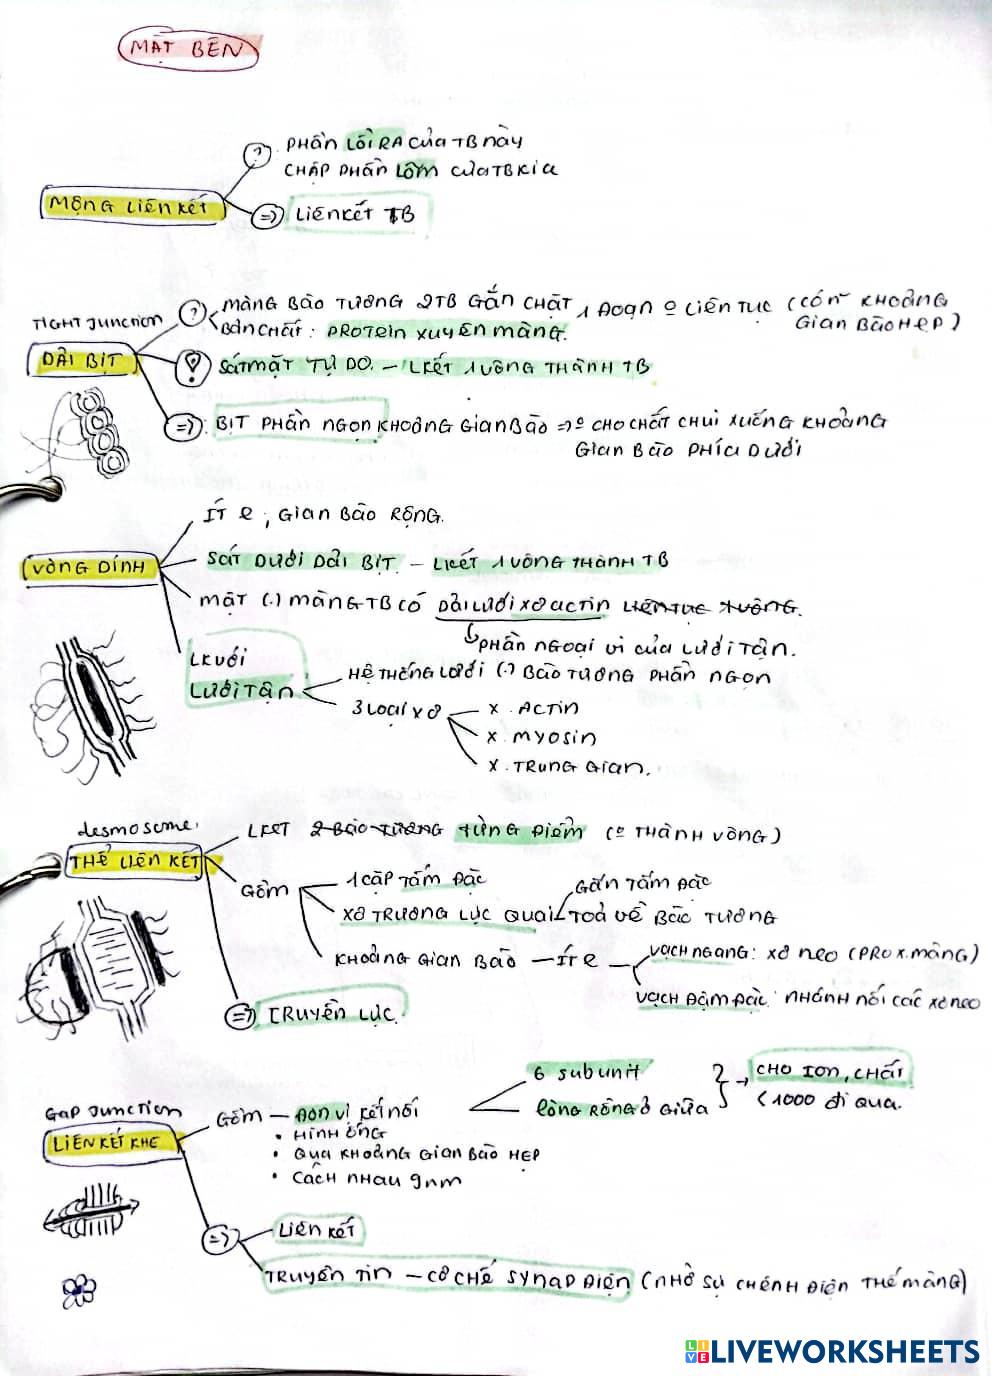 MẶT BÊN
? PHẦN LỒI RA CỦA TB NÀY
CHẬP PHẦN LÕM CỦA TB KIA
MỘNG LIÊN KẾT
=> LIÊN KẾT TB
TIGHT JUNCTION
? MÀNG BÀO TƯƠNG 2TB GẮN CHẶT, 1 ĐOẠN LIÊN TỤC (CÒN KHOẢNG
GIAN BÀO HẸP)
BẢN CHẤT: PROTEIN XUYÊN MÀNG.
DẢI BỊT
! SÁT MẶT TỰ DO. – LKẾT 1 VÒNG THÀNH TB
=> : BỊT PHẦN NGỌN KHOẢNG GIAN BÀO => º CHO CHẤT CHUI XUỐNG KHOẢNG
GIAN BÀO PHÍA DƯỚI
ÍT e, GIAN BÀO RỘNG.
VÒNG DÍNH
SÁT DƯỚI DẢI BỊT – LKẾT 1 VÒNG THÀNH TB
MẶT (.) MÀNG TB CÓ DẢI LƯỚI XƠ ACTIN LIÊN TỤC
PHẦN NGOẠI VI CỦA LƯỚI TẬN.
LK VỚI
LƯỚI TẬN
HỆ THỐNG LƯỚI (.) BÀO TƯƠNG PHẦN NGỌN
3 LOẠI XƠ
X. ACTIN
X. MYOSIN
X. TRUNG GIAN.
desmosome.
LKẾT 2 BÀO TƯƠNG TỪNG ĐIỂM (º THÀNH VÒNG)
THỂ LIÊN KẾT
GỒM
1 CẶP TẤM ĐẶC
XƠ TRƯƠNG LỰC QUAI
GẮN TẤM ĐẶC
TOẢ VỀ BÀO TƯƠNG
KHOẢNG GIAN BÀO – ÍT e
VẠCH NGANG: XƠ NEO (PRO X. MÀNG)
VẠCH ĐẬM ĐẶC: NHÁNH NỐI CÁC XƠ NEO
=> TRUYỀN LỰC.
GAP JUNCTION
LIÊN KẾT KHE
GỒM – ĐƠN VỊ KẾT NỐI
• HÌNH ỐNG
• QUA KHOẢNG GIAN BÀO HẸP
• CÁCH NHAU 9nm
6 SUBUNIT
LÒNG RỖNG Ở GIỮA
} → CHO ION, CHẤT
<1000 ĐI QUA.
=> LIÊN KẾT
TRUYỀN TIN – CƠ CHẾ SYNAP ĐIỆN (NHỜ SỰ CHÊNH ĐIỆN THẾ MÀNG)
LIVEWORKSHEETS